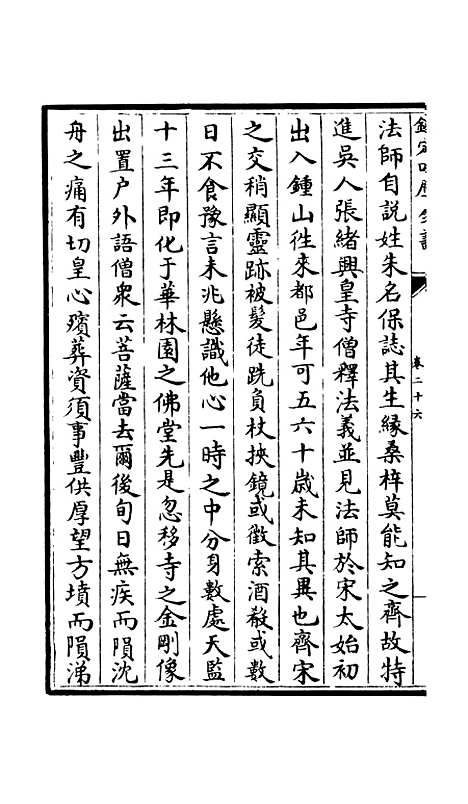 欽定四庫全書
卷二十六
法師自説姓朱名保誌其生縁桑梓莫能知之齊故特
進吳人張緒興皇寺僧釋法義並見法師於宋太始初
出入鍾山徃來都邑年可五六十嵗未知其異也齊宋
之交稍顯靈跡被髪徒跣負杖挾鏡或徵索酒殽或數
日不食豫言未兆懸識他心一時之中分身數處天監
十三年即化于華林園之佛堂先是忽移寺之金剛像
出置户外語僧衆云菩薩當去爾後旬日無疾而隕沈
舟之痛有切皇心殯葬資須事豐供厚望方墳而隕涕